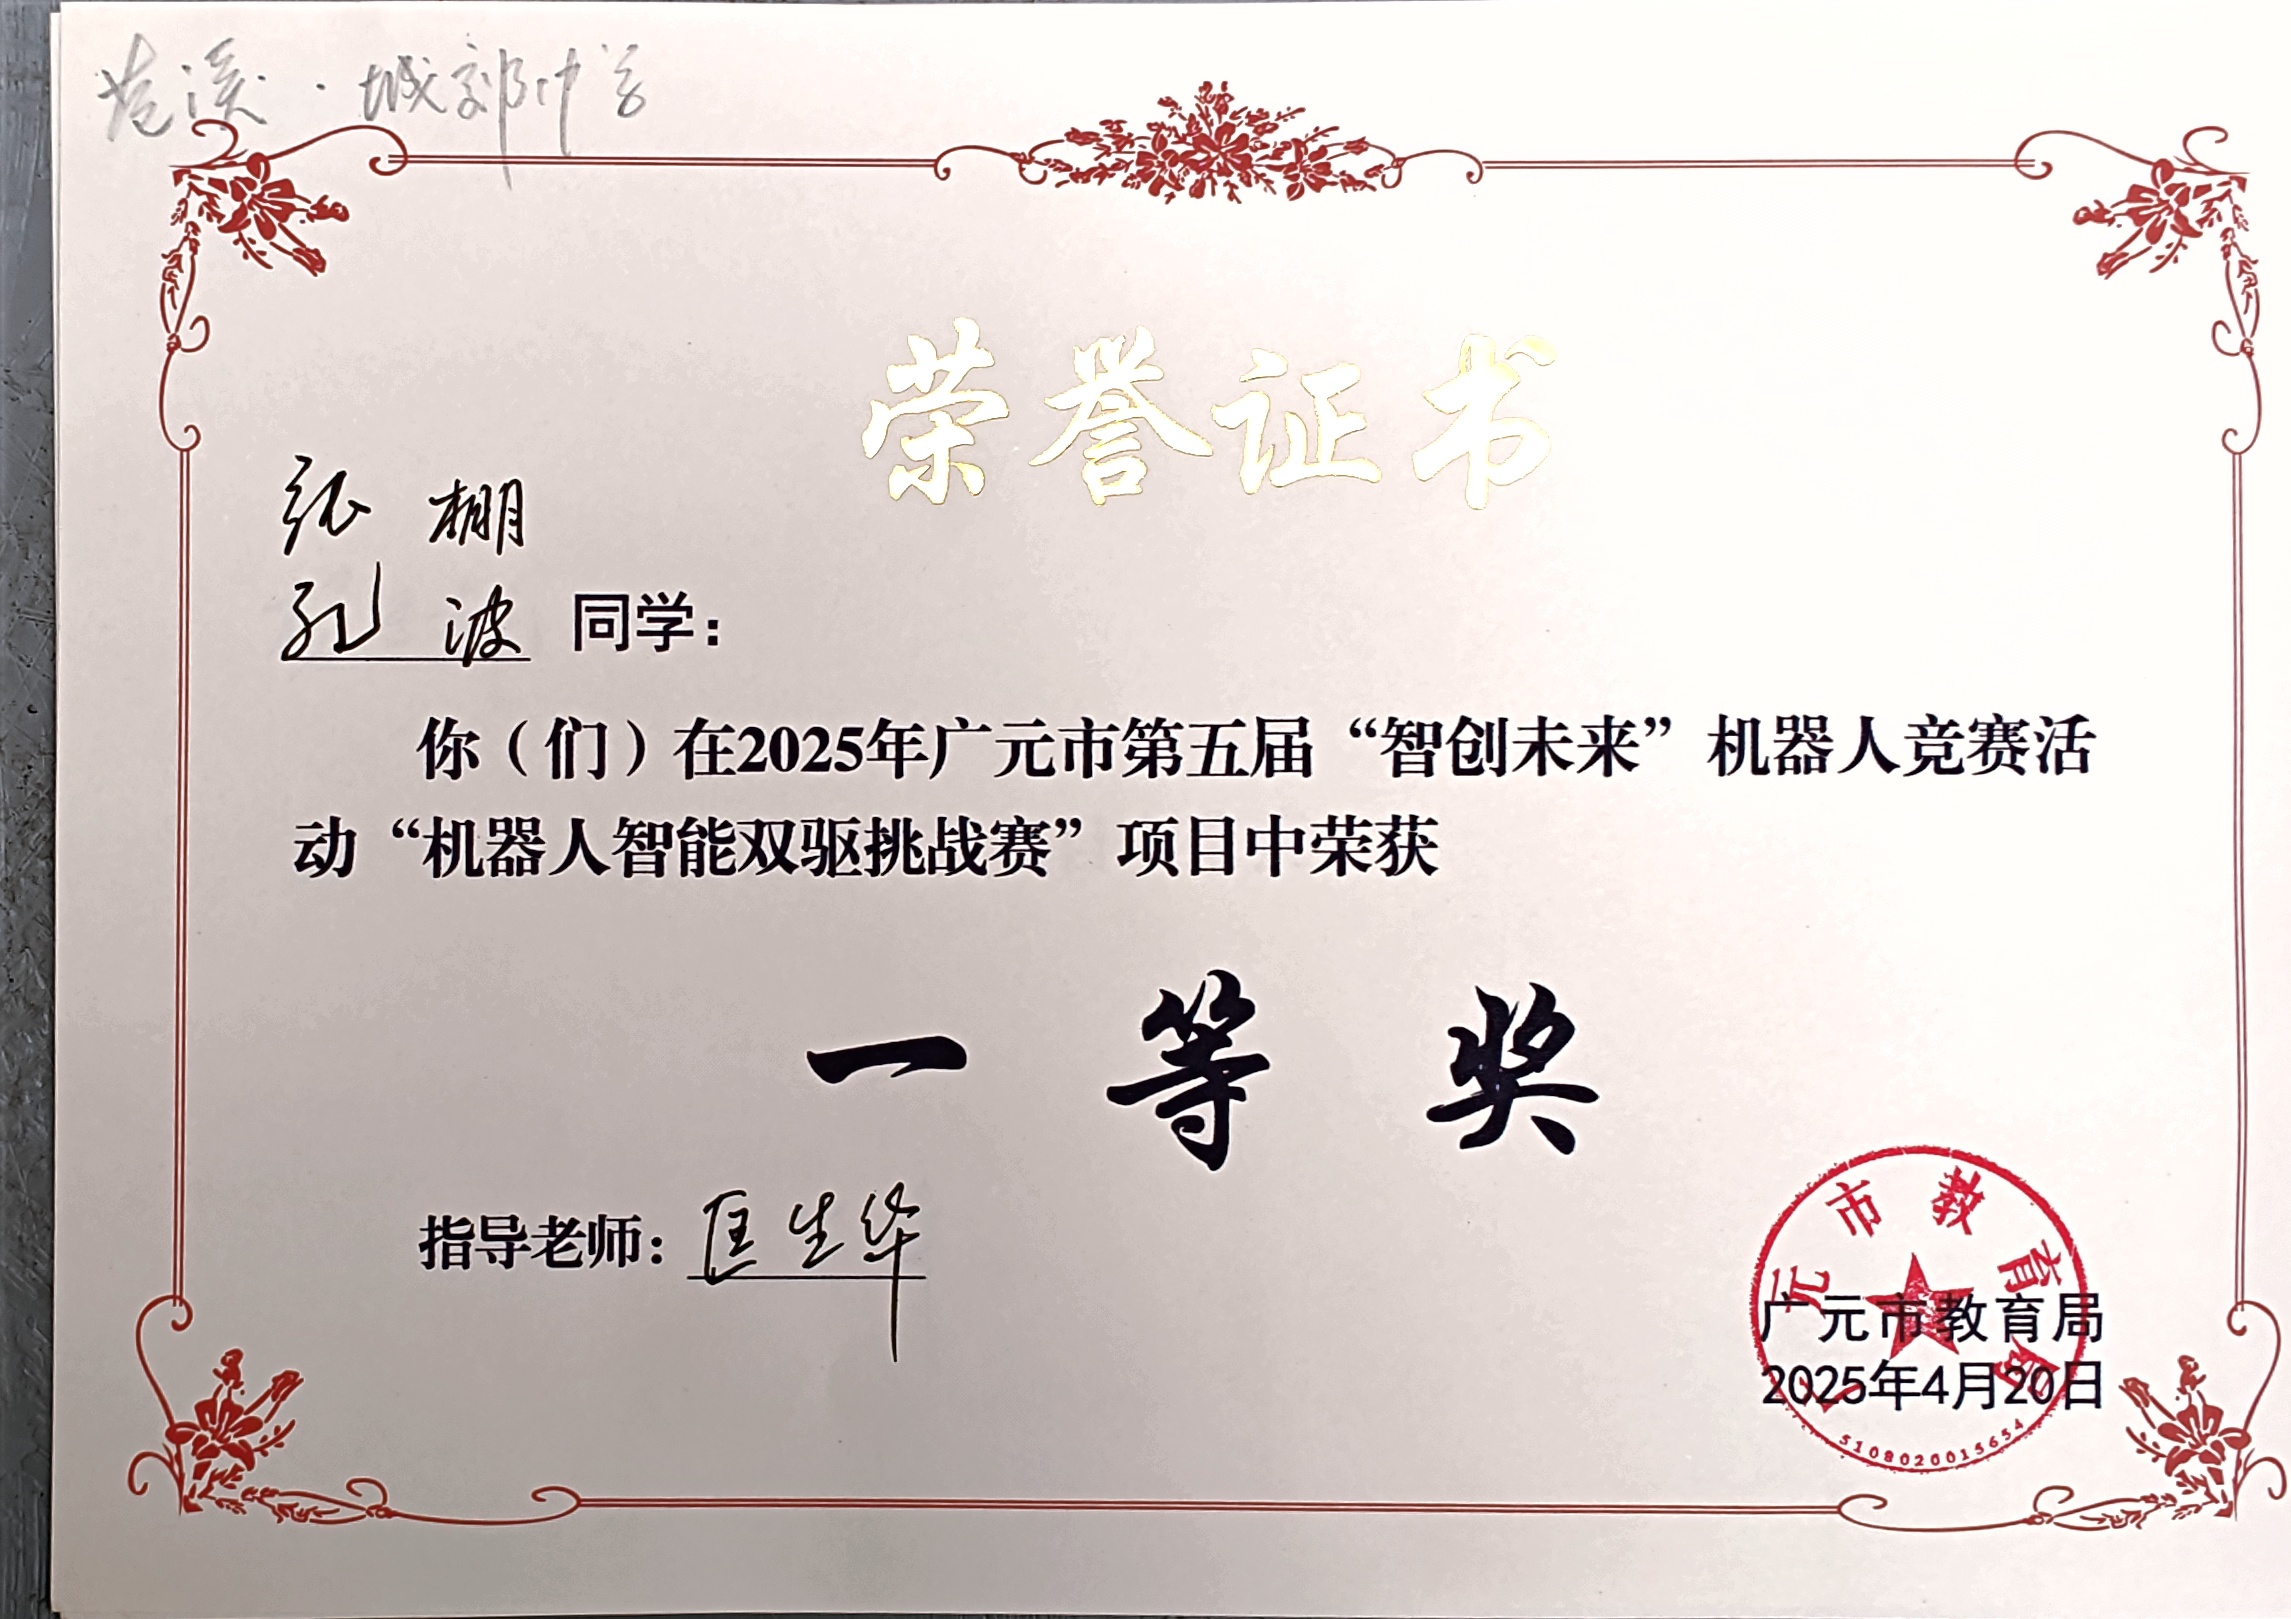 苍溪·城郊中学
荣誉证书
张 棚
孔 波 同学：
你（们）在2025年广元市第五届“智创未来”机器人竞赛活
动“机器人智能双驱挑战赛”项目中荣获
一等奖
指导老师：匡生华
广元市教育局
广元市教育局
2025年4月20日
5108020015654